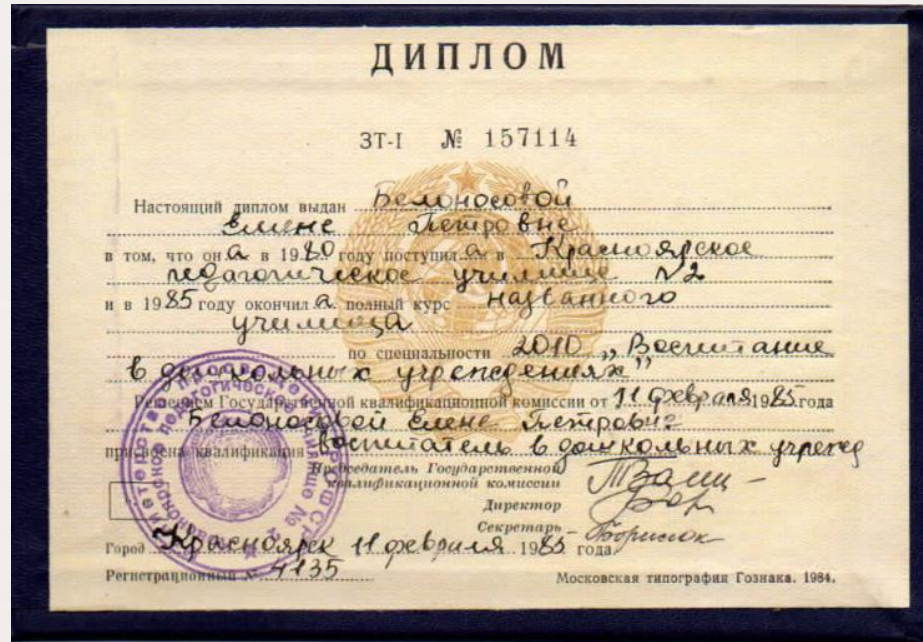 ДИПЛОМ
ЗТ-I № 157114
Настоящий диплом выдан Белоносовой
Елене Петровне
в том, что он а в 1980 году поступил а в Красноярское
педагогическое училище №2
и в 1985 году окончил а полный курс названного
училища
по специальности 2010 „Воспитание
в дошкольных учреждениях"
Решением Государственной квалификационной комиссии от 11 февраля 1985 года
Белоносовой Елене Петровне
присвоена квалификация воспитатель в дошкольных учрежд
Председатель Государственной
квалификационной комиссии
Директор
Секретарь
Город Красноярск 11 февраля 1985 года
Регистрационный № 4135
Московская типография Гознака. 1984.